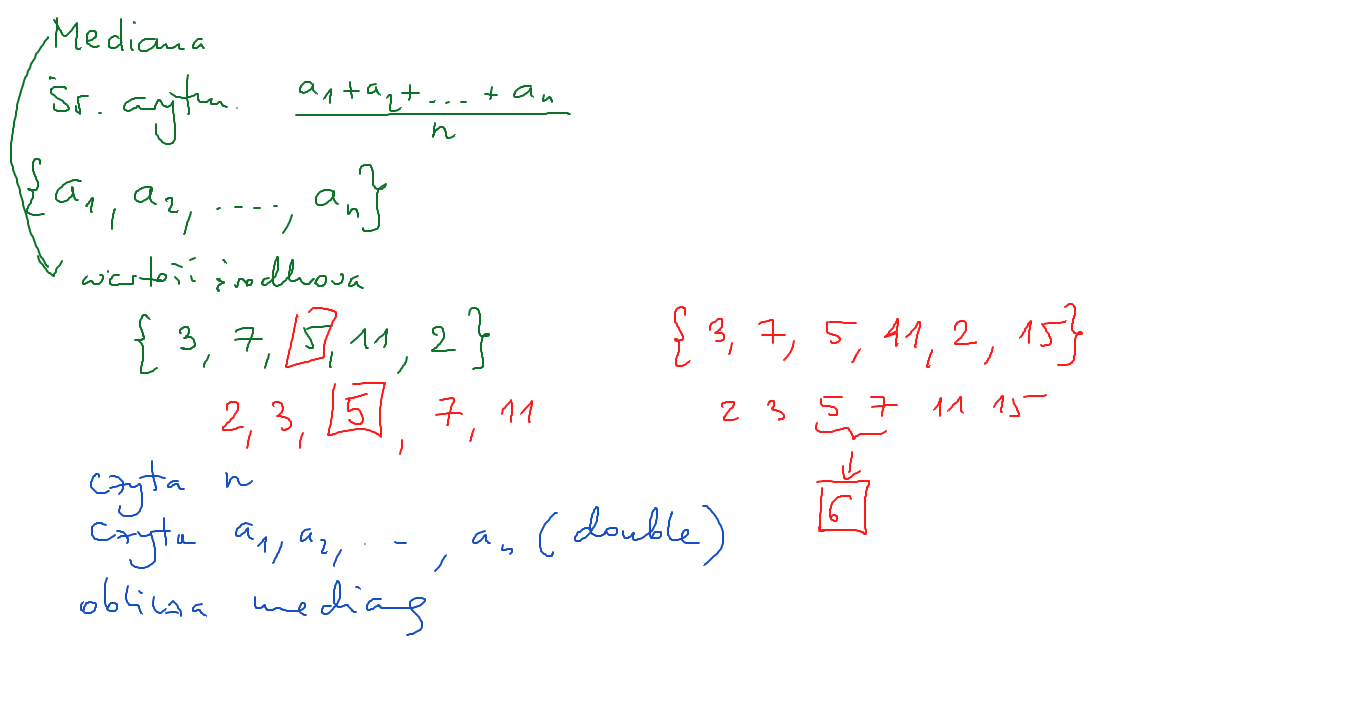 Mediana
Śr. arytm. a₁+a₂+...+aₙ / n
{a₁, a₂, ...., aₙ}
wartość środkowa
{ 3, 7, 5, 11, 2 }
2, 3, 5, 7, 11
{3, 7, 5, 11, 2, 15}
2 3 5 7 11 15
6
czyta n
czyta a₁, a₂, ..., aₙ (double)
oblicza medianę